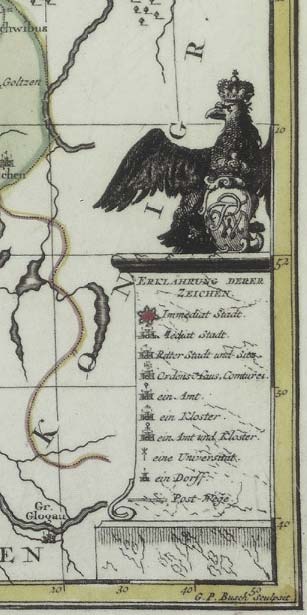 chwibus
Goltzen
chen
K Ö N I G R.
10
52
50
40
ERKLÆHRUNG DERER
ZEICHEN
Immediat Stadt.
Mediat Stadt.
Ritter Stadt und Sitz.
Ordens Haus, Comturei.
ein Amt.
ein Kloster.
ein Amt und Kloster.
eine Universitæt.
ein Dorff.
Post Wege
Gr.
Glogau
EN
20
30
40
50
G. P. Busch Sculpsit